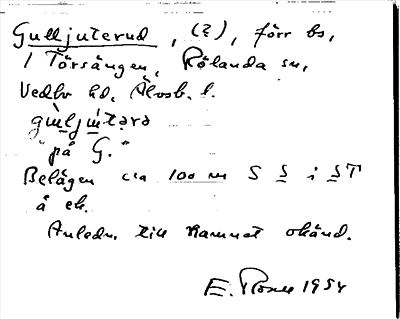 Gulljuterud, (2), förr bs,
1 Törsängen, Rölanda sn,
Vedbo hd, Älvsb. l.
gu̇ljútərə
"på G."
Belägen ca 100 m S S i ST
å ek.
Anledn. till namnet okänd.
E. 1954